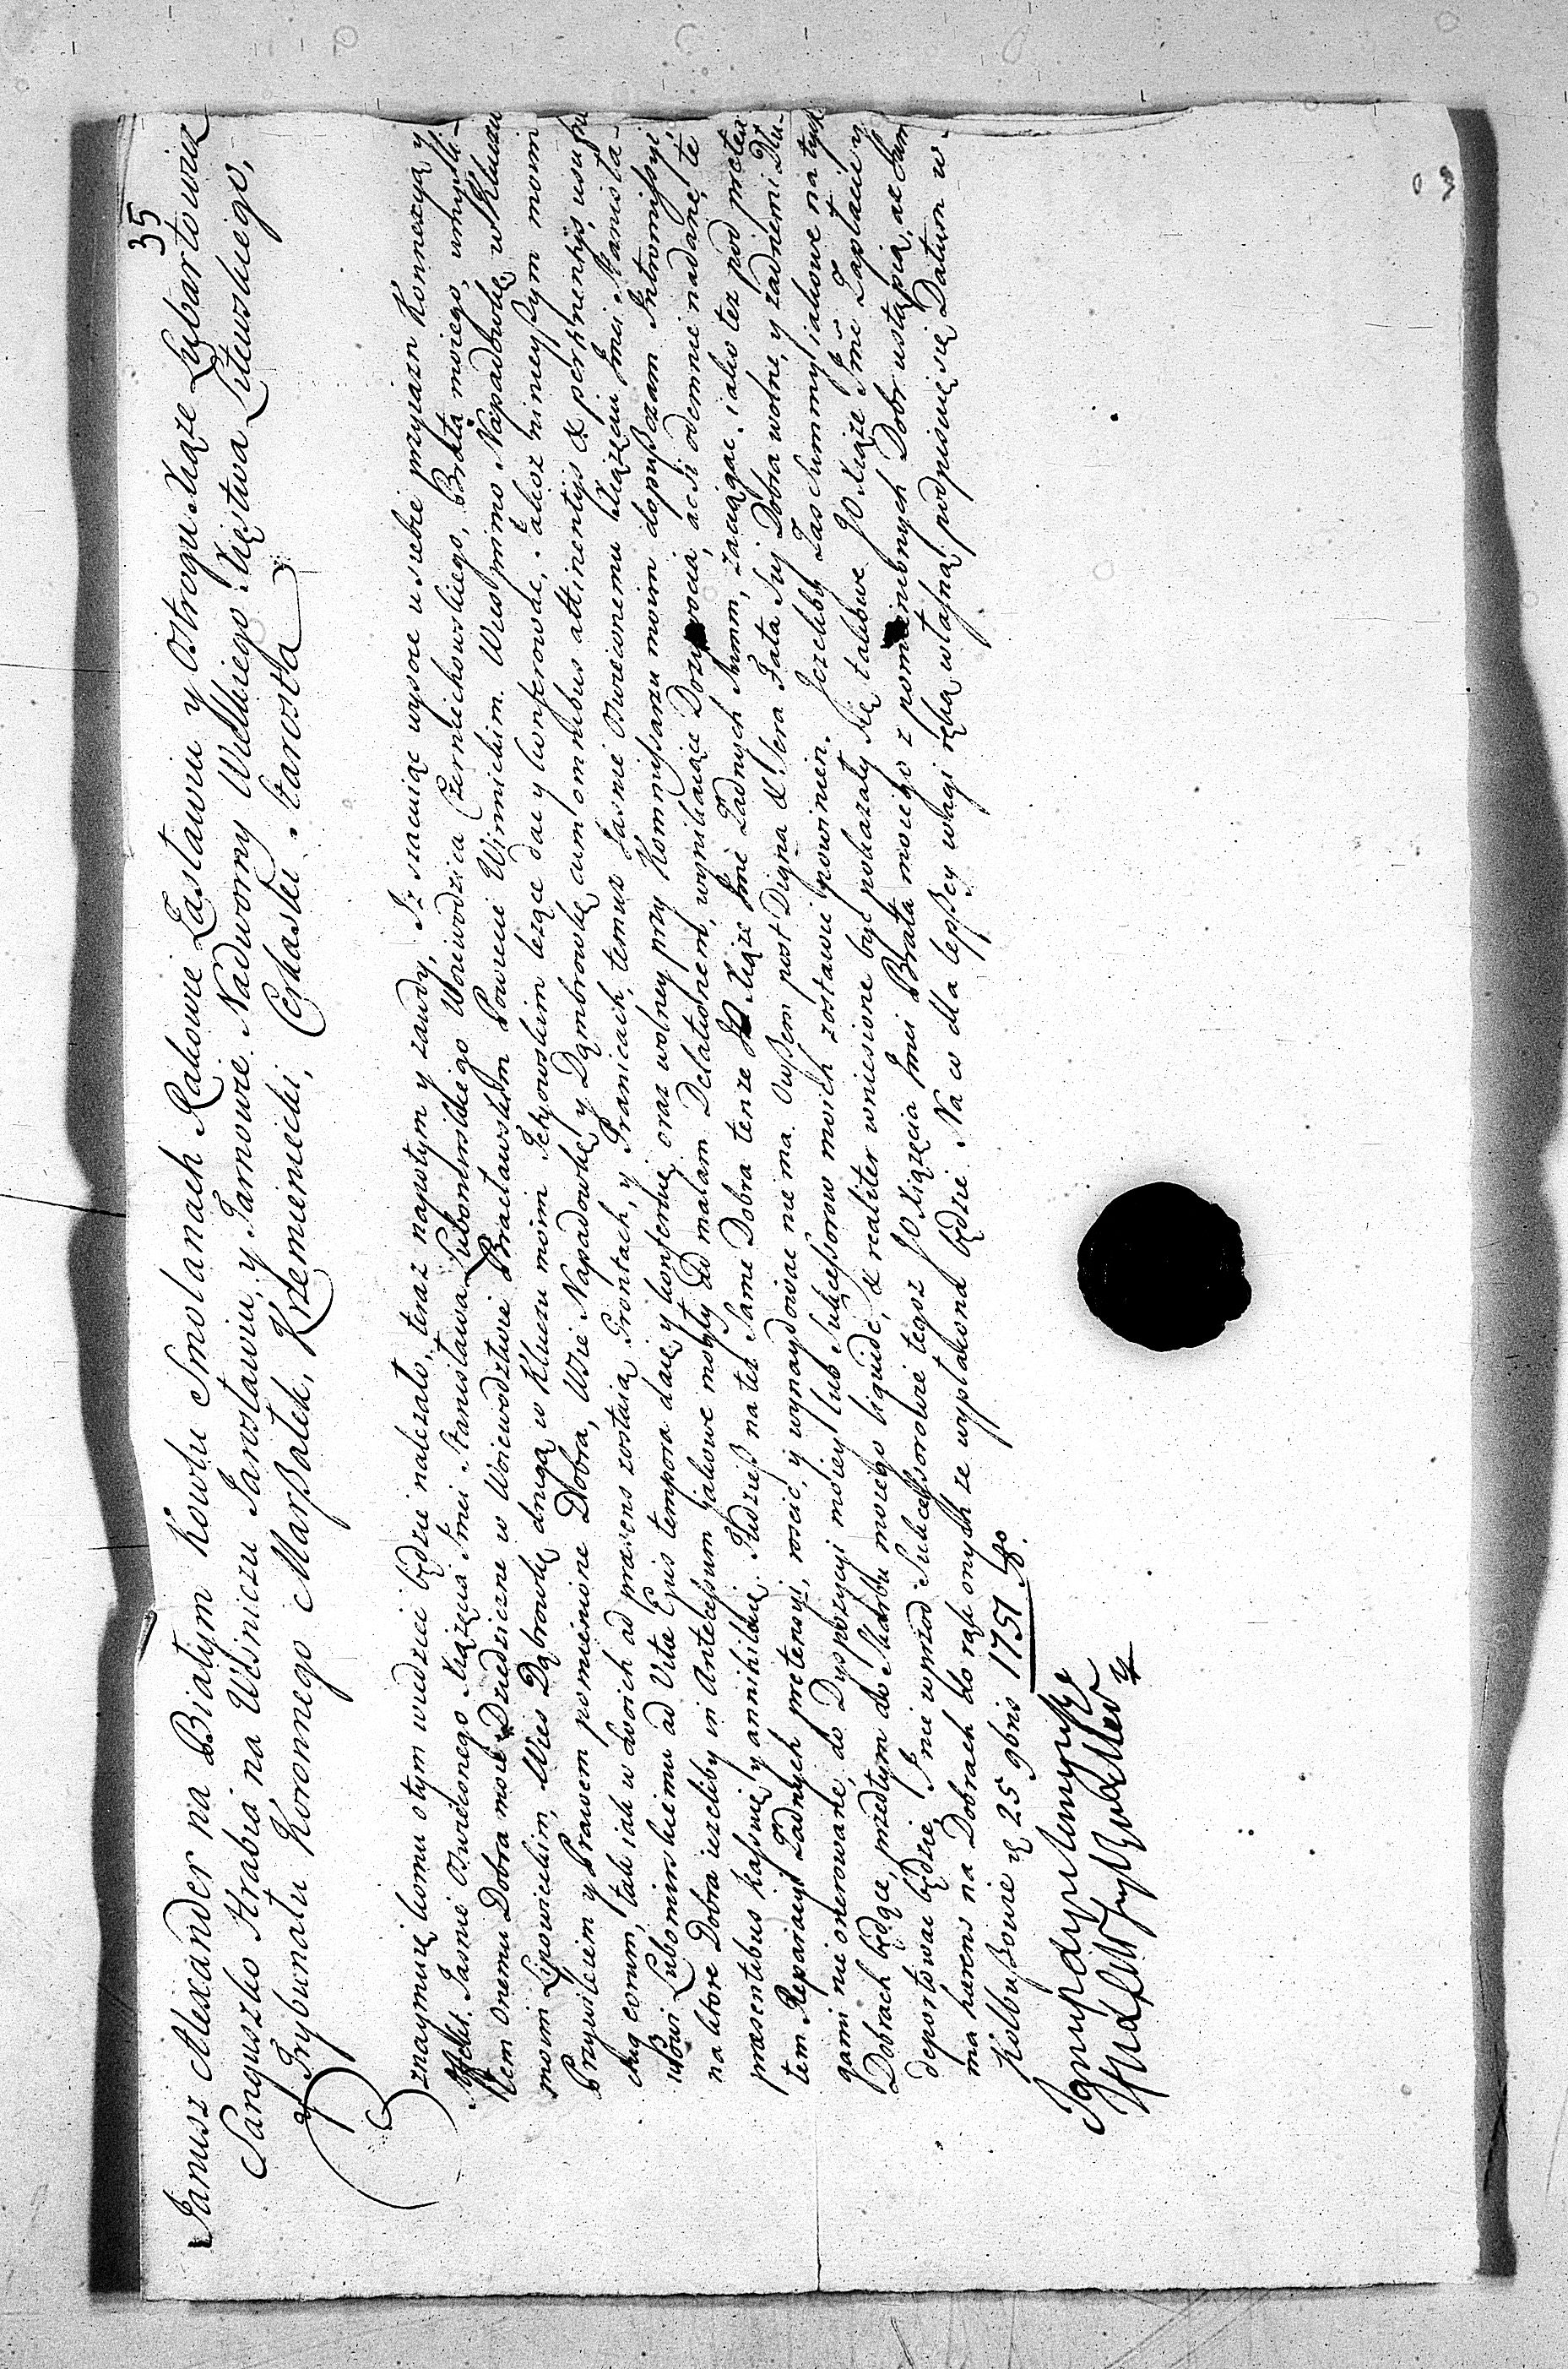 35
Janusz Alexander na Białym Kowlu Smolanach Rakowie Zasławiu y Ostrogu Xiąże Lubartowicz
Sanguszko Hrabia na Wiśniczu Jarosławiu, y Tarnowie. Nadworny Wielkiego Xięstwa Litewskiego,
y Trybunału Koronnego Marszałek, Krzemieniecki, Czerkaski Starosta
Oznaymuię komu otym wiedzieć będzie należało, teraz napotym y zawdy, Iż szacuiąc wysoce u siebie przyiazn Konnexyą y
Affekt Jasnie Oswieconego Xiążęcia Jmci Stanisława Lubomirskiego Woiewodzica Czerniechowskiego, Brata moiego, umysli-
łem onemu Dobra moie Dziedziczne w Woiewodztwie Bracławskim Powiecie Winnickim. Wies pimo Napadowkę w Kluczu
moim Lipowieckim, Wies Dąbrowkę drugą w Kluczu moim Tetyowskim leżące dac y konferowac, iakosz ninieyszym moim
Przywileiem y Prawem pomienione Dobra, Wsie Napadowkę y Dąmbrowkę cum omnibus attinentiis & pertinentiis, usu fru
ctuq eorum, tak iak w swoich ad præsens zostaią Grontach, y Granicach, temusz Jasnie Oswieconemu Xiążęciu Jmci Stanisła-
wowi Lubomirskiemu ad Vitæ Ejus tempora daię y konferuię, oraz wolney przy Kommissarzu moim dopuszczam Intromissyi,
na ktore Dobra ieżeliby in Antecessum iakowe mogły do malam Delationem, wynikaiące Dożywocia, acsi odemnie nadane, te
præsentibus kassuię y annihiluię. Tudziesz na tes same Dobra tenze JO Xiąże Jmć żadnych Summ, zaciągac, iako tez pod pretex
tem Reparacyi żadnych pretensyi, roscić, y wynaydowac nie ma. Owszem post Digna & sera Fata Suj Dobra wolne, y żadnemi Dłu-
gami nie onerowane, do Dyspozycyi moiey lub Sukcessorow moich zostawić powinien. Jeżeliby zas Summy iakowe na tych
Dobrach będące, przedtym do Skarbu moiego liquide, & realiter wniesione być pokazały się takowe JO Xiąże Jmć Zapłacić y
deportować będzie I nie wprzod Sukcessorowie tegoz JO Xiążęcia Jmci Brata moiego z pomienionych Dobr ustąpią, aż Sum
ma haerens na Dobrach do rąk onych ze wypłacona będzie. Na co dla lepszey wagi ręką własną podpisuię się Datum w
Kolbuszowie d 25 9bris 1751 Ao.